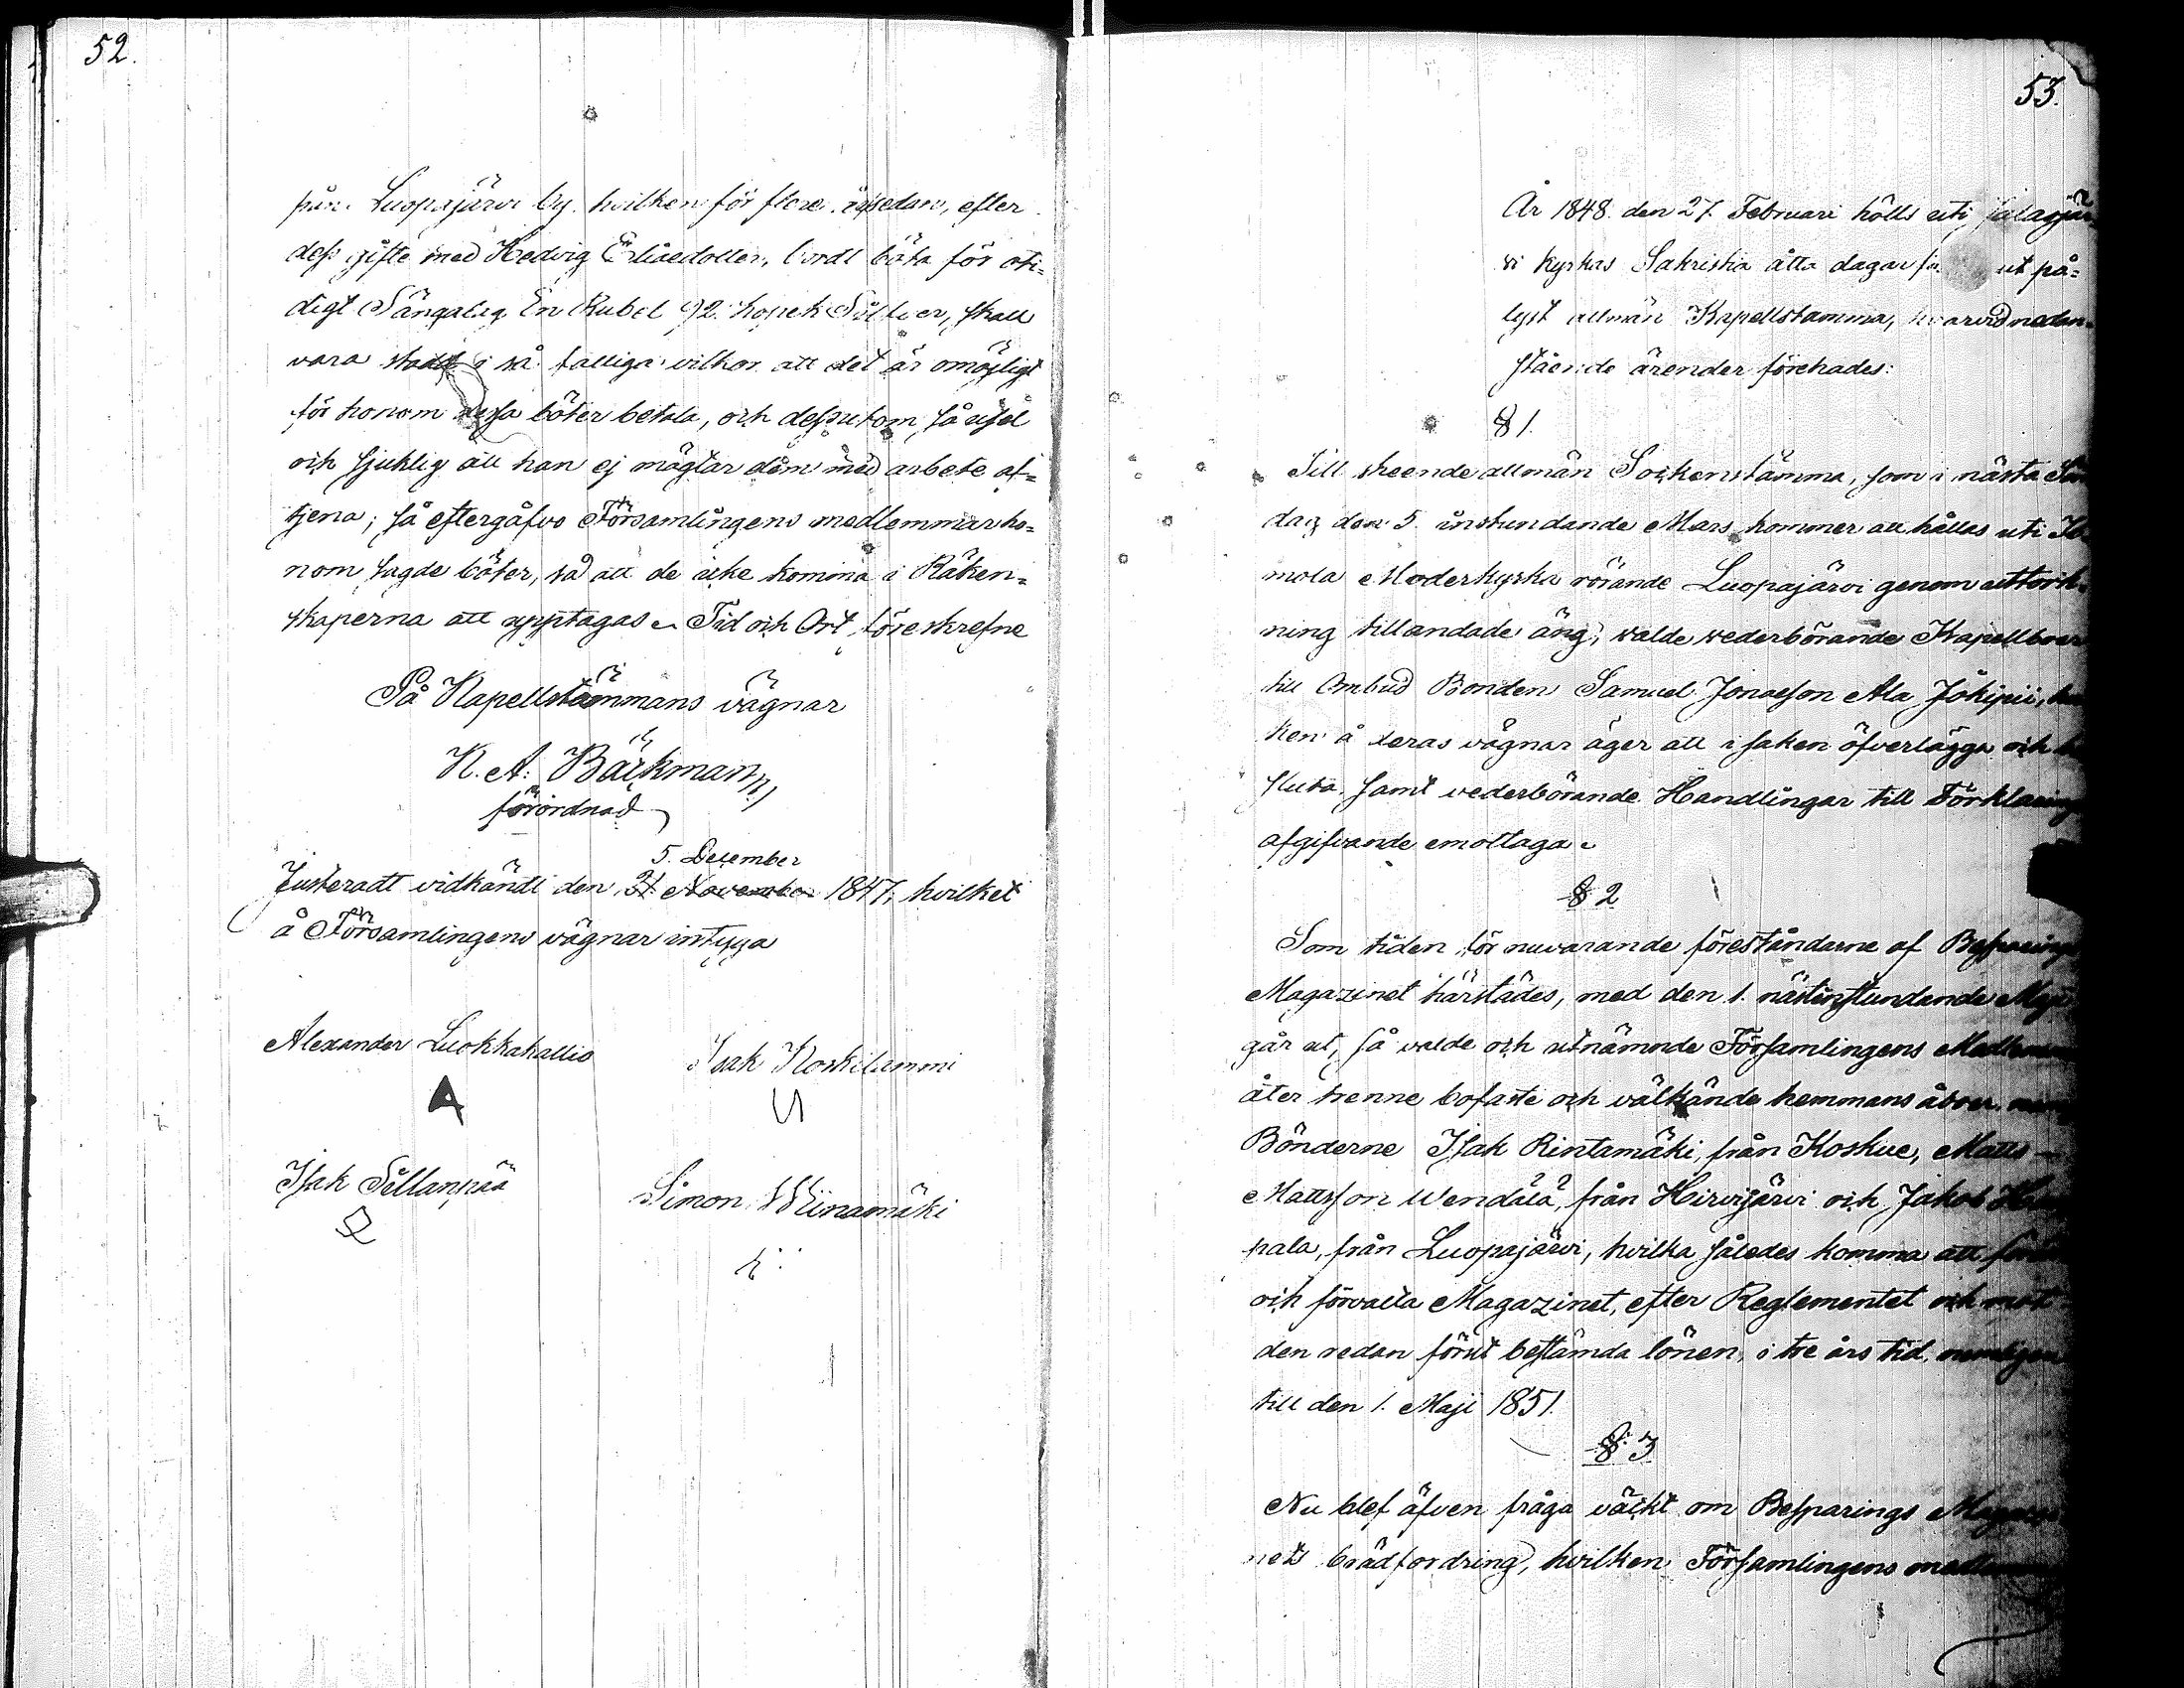 52.
från Luopajärvi by, hvilken för flere år sedan, efter
dess gifte med Hedvig Eliaedotter, bordt böta för oti=
digt Sängalag En Rubel 92 kopek Silfver, skall
vara stadd i så fattiga vilkor att det är omöjligt
för honom dessa böter betala, och dessutom så usel
och sjuklig att han ej mägtar dem med arbete af=
tjena; så eftergåfvo Församlingens medlemmar ho=
nom sagde böter, så att de icke komma i Räken=
skaperna att upptagas. Tid och Ort, föreskrefne
På Kapellstämmans vägnar
K. A: Bäckman
förordnad
5. December
Justeradt vidkändt den 21 November 1847; hvilket
å Församlingens vägnar intyga
Alexander Luokkakallio Isak Koskilammi
A
Isak Sillanpää Simon Wiinamäki
53.
År 1848 den 27. Februari hölls uti Jalasjär=
vi kyrkas Sakristia åtta dagar ut på=
lyst allmän Kapellstämma, hvarvid nedan=
stående ärender förehades:
§ 1.
Till skeende allmän Sockenstämma, som i nästa Sön
dag den 5. instundande Mars kommer att hållas uti Il
mola Moderkyrka rörande Luopajärvi genom uttork=
ning tillandade äng, valde vederbörande Kapellboer
till Ombud Bonden Samuel Jonasson Ala Jokipii,
ken å deras vägnar äger att i saken öfverlägga och be
sluta samt vederbörande Handlingar till Förklarings
afgifvande emottaga.
§ 2
Som tiden för nuvarande föreståndarne af Besparings
Magazinet härstädes, med den 1. nästinstundande Maji
går ut, så valde och utnämnde Församlingens Medlemmar
åter trenne bofaste och välkände hemmans åboer,
Bönderne Isak Rintamäki, från Koskue, Matts
Mattsson Wendälä, från Hirvijärvi och Jakob
pala, från Luopajärvi, hvilka således komma att
och förvalta Magazinet, efter Reglementet och mot
den redan förut bestämda lönen, i tre års tid, nemligen
till den 1. Maji 1851.
§. 3
Nu blef äfven fråga väckt om Besparings Magazi
nets brådfordring, hvilken Församlingens medlemmar